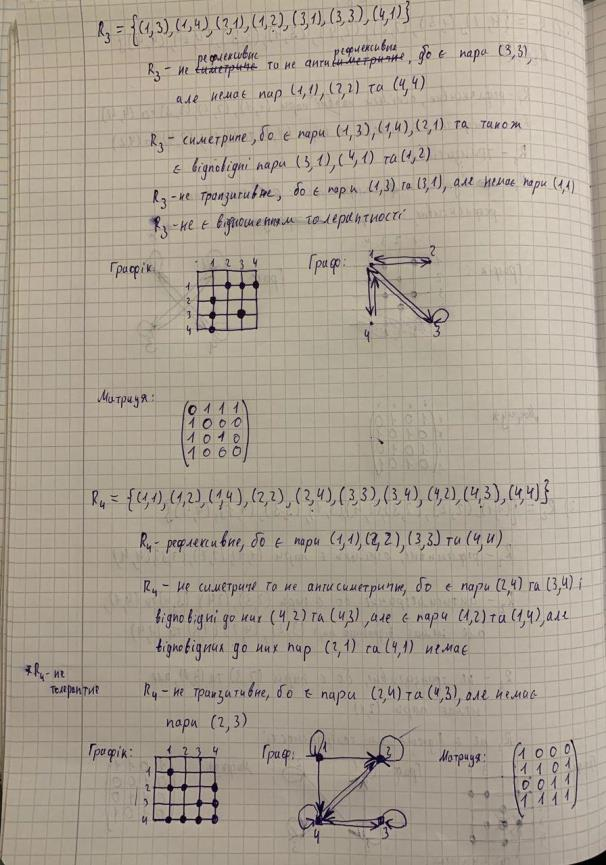 R₃ = {(1,3),(1,4),(2,1),(1,2),(3,1),(3,3),(4,1)}
R₃ - не рефлексивне та не антирефлексивне, бо є пари (3,3),
але немає пар (1,1),(2,2) та (4,4)
R₃ - симетричне, бо є пари (1,3),(1,4),(2,1) та також
є відповідні пари (3,1),(4,1) та (1,2)
R₃ - не транзитивне, бо є пари (1,3) та (3,1), але немає пари (1,1)
R₃ - не є відношенням толерантності
Графік:
Граф:
1 2 3 4
1
2
3
4
1
2
4
3
Матриця:
0 1 1 1
1 0 0 0
1 0 1 0
1 0 0 0
R₄ = {(1,1),(1,2),(1,4),(2,2),(2,4),(3,3),(3,4),(4,2),(4,3),(4,4)}
R₄ - рефлексивне, бо є пари (1,1),(2,2),(3,3) та (4,4).
R₄ - не симетричне та не антисиметричне, бо є пари (2,4) та (3,4) і
відповідні до них (4,2) та (4,3), але є пари (1,2) та (1,4), але
відповідних до них пар (2,1) та (4,1) немає
*R₄ - не
толерантне
R₄ - не транзитивне, бо є пари (2,4) та (4,3), але немає
пари (2,3)
Графік:
Граф:
Матриця:
1 2 3 4
1
2
3
4
1
2
4
3
1 0 0 0
1 1 0 1
0 0 1 1
1 1 1 1